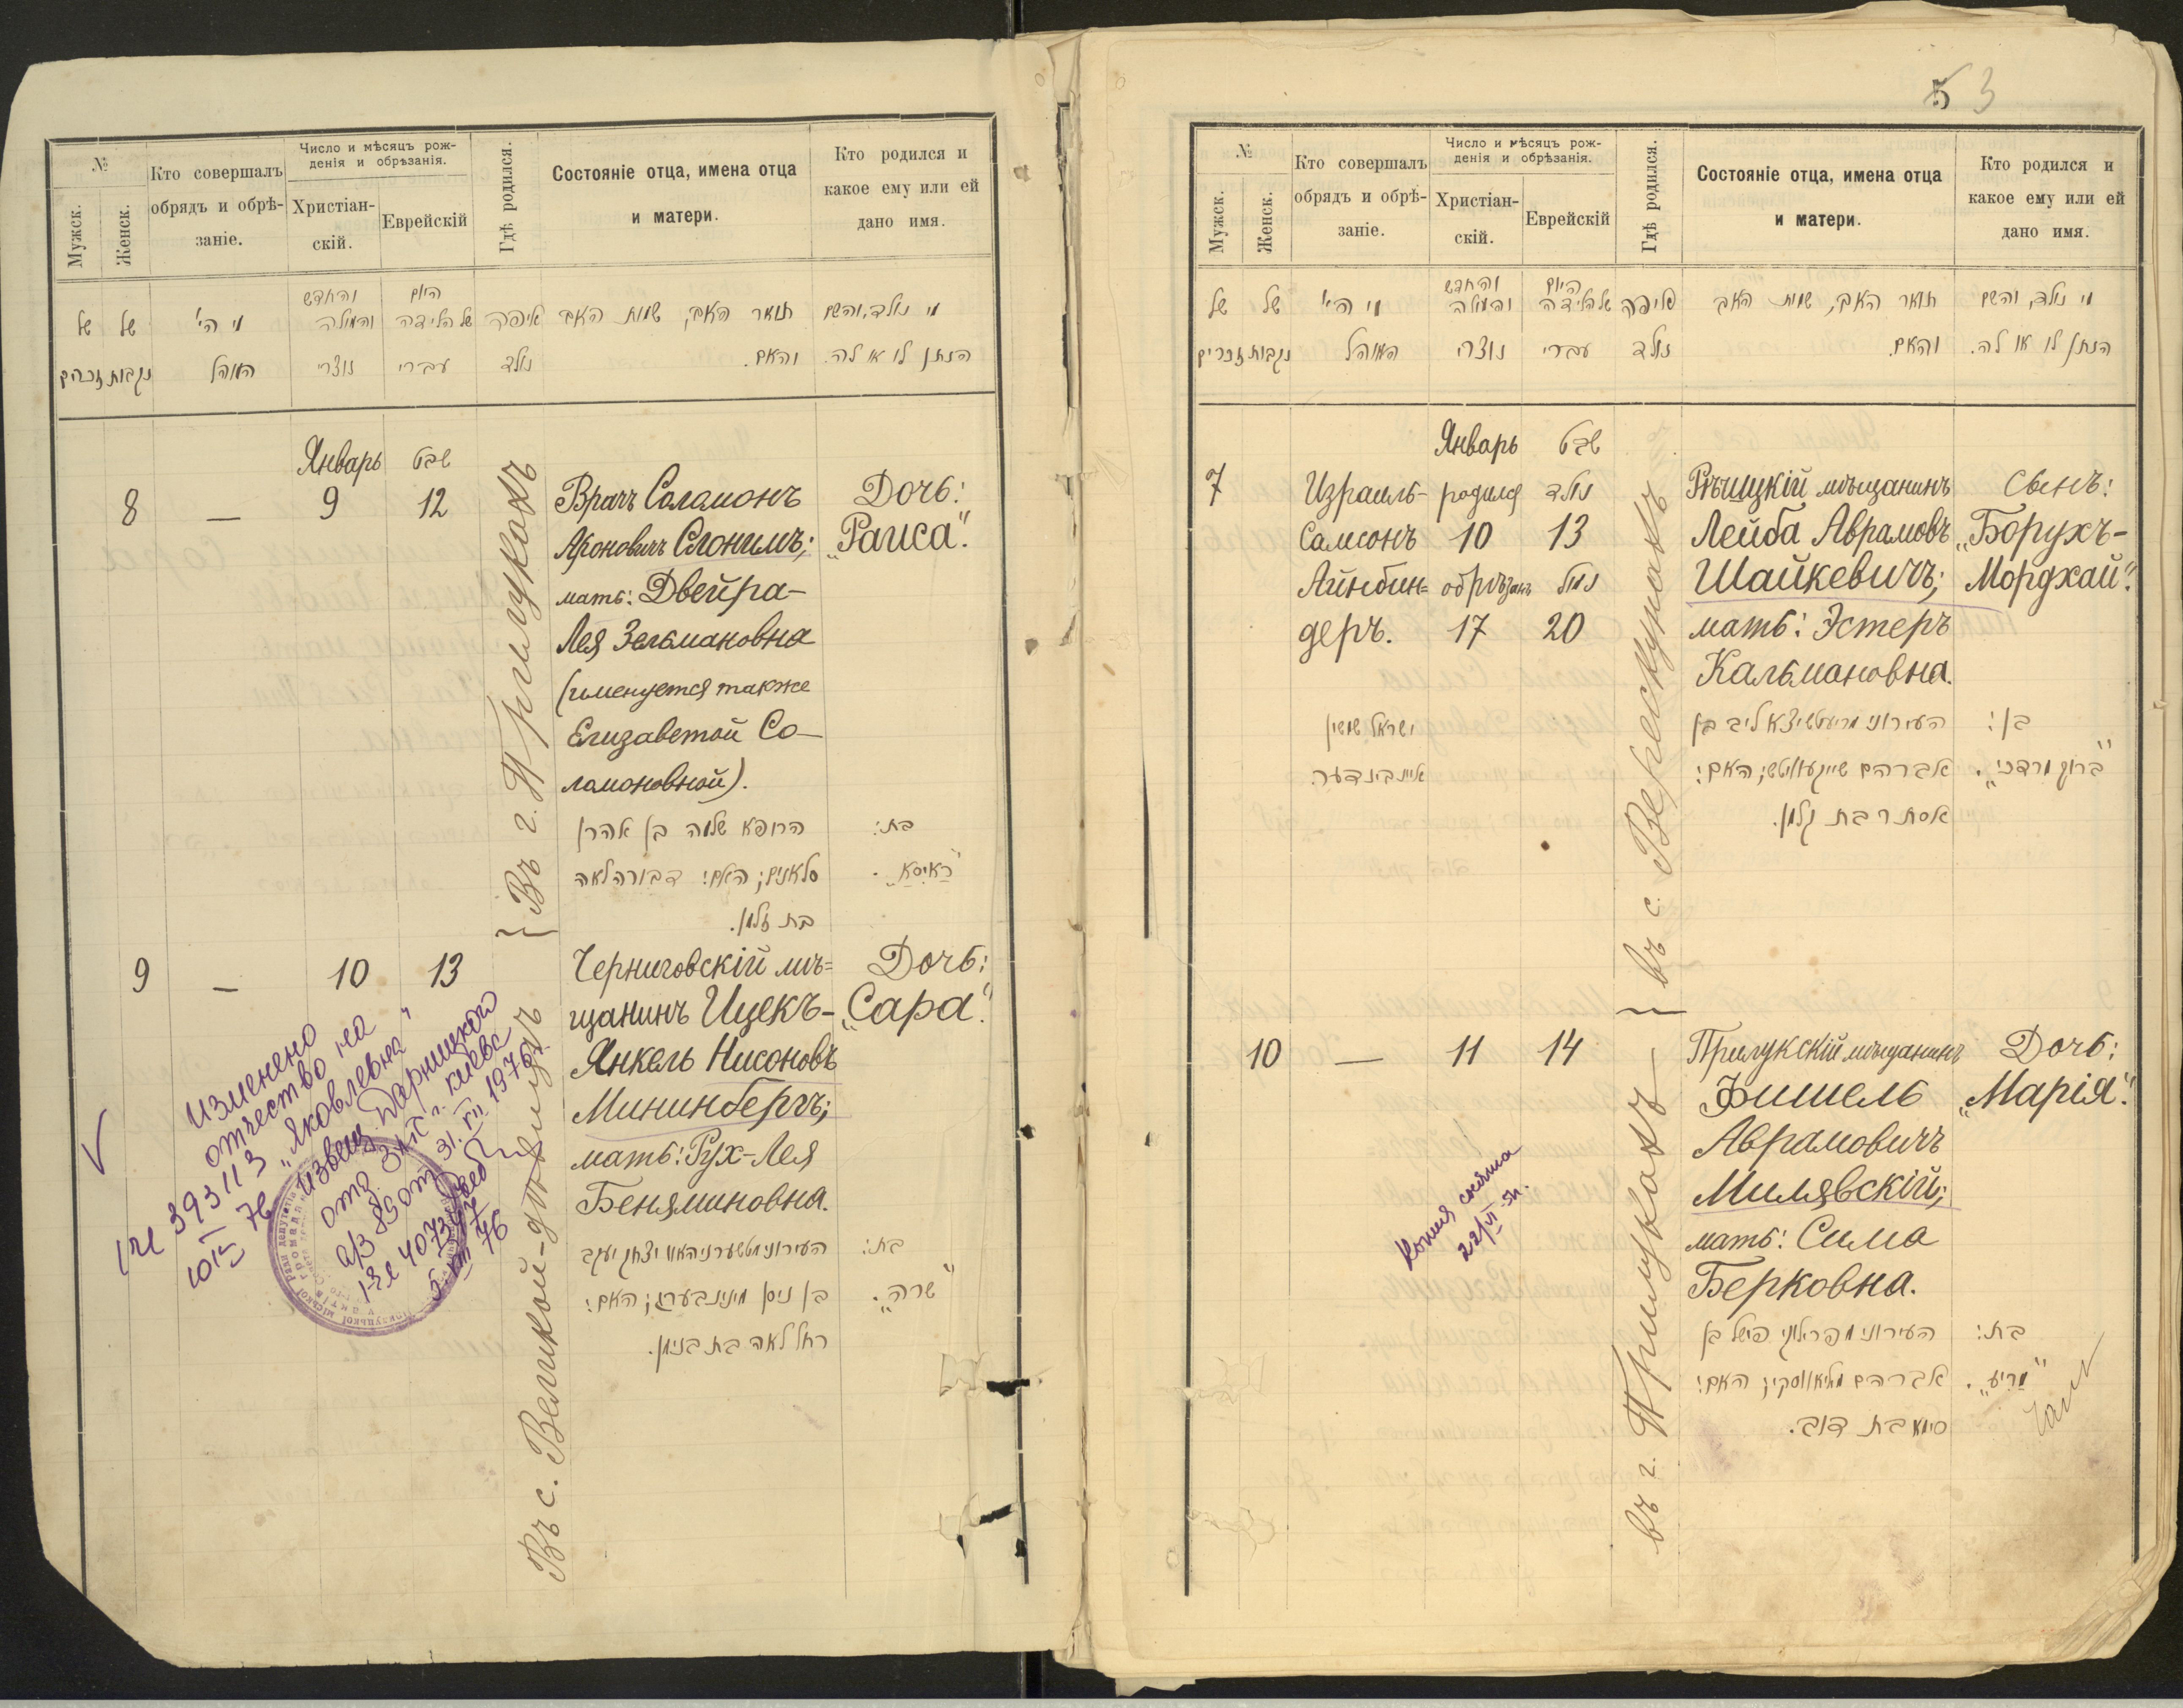 №
Мужск.
Женск.
Кто совершалъ
обрядъ и обрѣ-
заніе.
Число и мѣсяцъ рож-
денія и обрѣзанія.
Христіан-
скій.
Еврейскій
Гдѣ родился.
Состояніе отца, имена отца
и матери.
Кто родился и
какое ему или ей
дано имя.
של של מי הי' והחדש היום
והמילה של הלידה איפה תואר האב, שמות האב מי נולד, והשם
זכרים נקבות המוהל נוצרי עברי נולד והאם. הנתן לו או לה.
Январь שבט
8 — 9 12
Въ г. Прилукахъ
Врачъ Соломонъ
Ароновичъ Слонимъ;
мать: Двейра-
Лея Зельмановна
(именуется также
Елизаветой Со-
ломоновной).
Дочь:
„Раиса".
הרופא שלמה בן אהרן
סלאנים; האם: דבורה לאה
בת זלמן.
בת:
"ראיסא".
9 — 10 13
Въ с. Великой-
Черниговскій мѣ-
щанинъ Ицекъ-
Янкель Нисоновъ
Мининбергъ;
мать: Рух-Лея
Беняминовна.
Дочь:
„Сара".
יצחק יעקב
בן ניסן מינינבערג; האם:
רחל לאה בת בנימן.
בת:
"שרה".
изменено
отчество на
„Яковлевна"
извещ. Дарницкого
отд. ЗАГС г. Киева
а/з 85 от 31.VII 1976
393113
76
5.VIII 76
5 3
№
Мужск.
Женск.
Кто совершалъ
обрядъ и обрѣ-
заніе.
Число и мѣсяцъ рож-
денія и обрѣзанія.
Христіан-
скій.
Еврейскій
Гдѣ родился.
Состояніе отца, имена отца
и матери.
Кто родился и
какое ему или ей
дано имя.
של של מי הי' והחדש היום
והמילה של הלידה איפה תואר האב, שמות האב מי נולד, והשם
זכרים נקבות המוהל נוצרי עברי נולד והאם. הנתן לו או לה.
Январь שבט
7
Израиль-
Самсонъ
Айнбин-
деръ.
родился נולד
10 13
обрѣзанъ נמול
17 20
въ с. Верескунахъ
Рѣчицкій мѣщанинъ
Лейба Аврамовъ
Шайкевичъ;
мать: Эстеръ
Кальмановна.
Сынъ:
„Борухъ-
Мордхай".
ישראל שמשון
איינבינדער.
העירוני מריעטשיצא ליב בן
אברהם שייקעוויטש; האם:
אסתר בת קלמן.
בן:
"ברוך מרדכי".
10 — 11 14
въ г. Прилукахъ
Прилукскій мѣщанинъ
Фишель
Аврамовичъ
Милявскій;
мать: Сима
Берковна.
Дочь:
„Марія".
העירוני מפרילוקי פישל בן
אברהם מיליאווסקי; האם:
סימא בת דוב.
בת:
"מריע".
Копия снята
22/VI